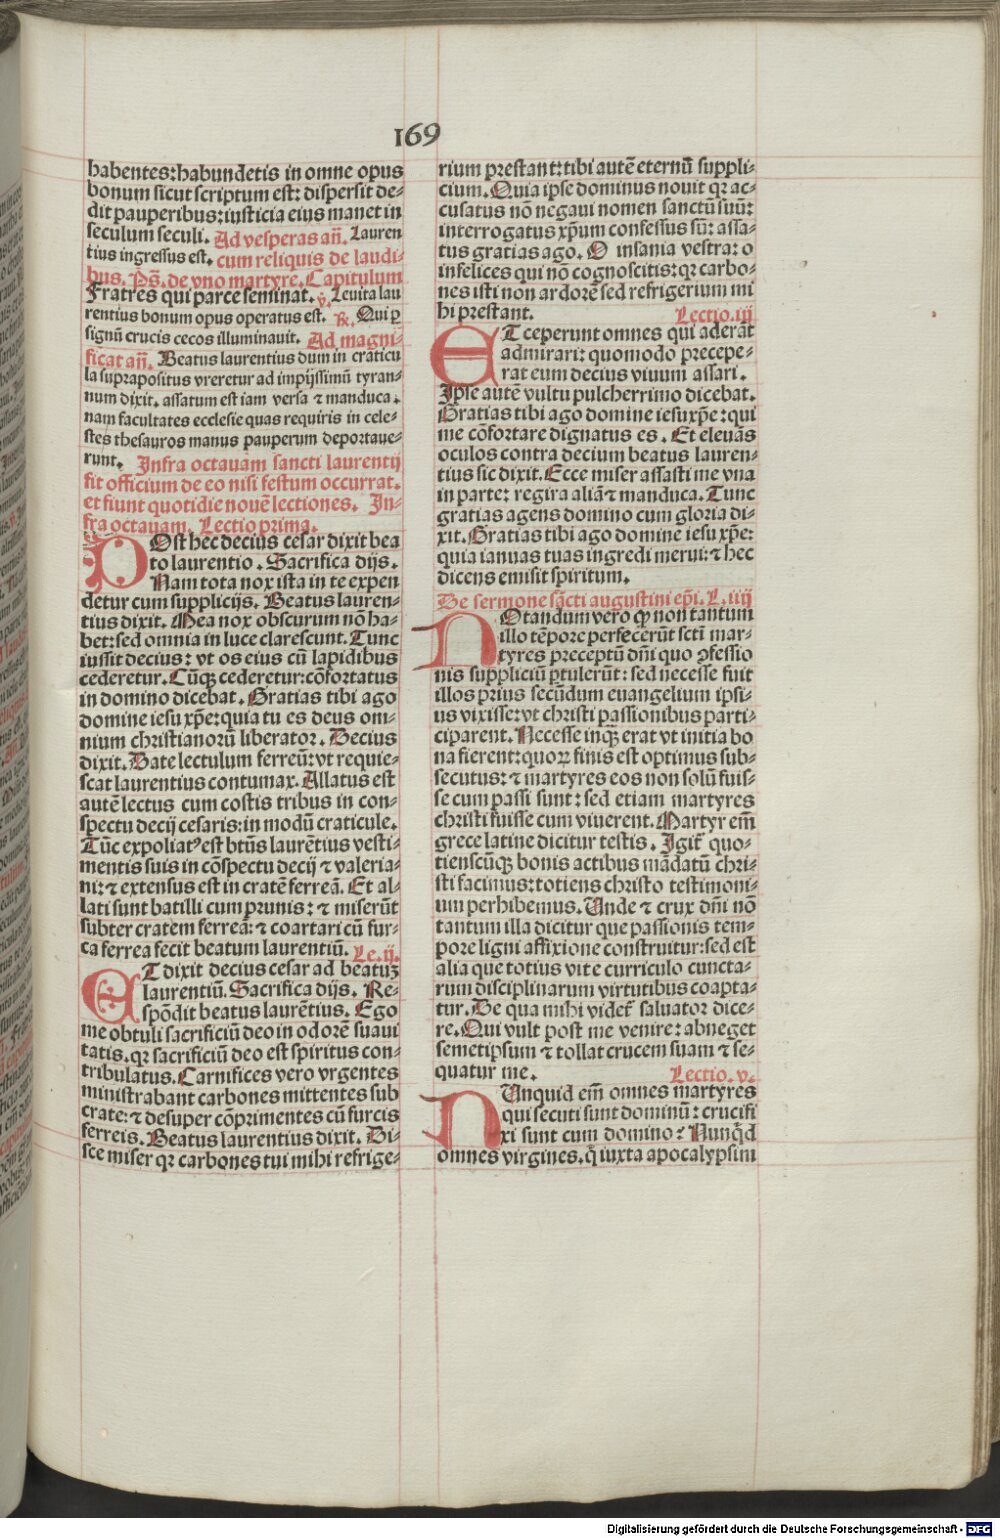 169
habentes: habundetis in omne opus
bonum sicut scriptum est: dispersit de-
dit pauperibus: iusticia eius manet in
seculum seculi. Ad vesperas añ. Lauren
tius ingressus est. cum reliquis de laudi-
bus. Ps̄. de vno martyre. Capitulum
Fratres qui parce seminat. ℣. Leuita lau
rentius bonum opus operatus est. ℟. Qui ꝑ
signū crucis cecos illuminauit. Ad magni-
ficat añ. Beatus laurentius dum in craticu
la suprapositus vreretur ad impijssimū tyran-
num dixit. assatum est iam versa ⁊ manduca.
nam facultates ecclesie quas requiris in cele-
stes thesauros manus pauperum deportaue-
runt. Infra octauam sancti laurentij
fit officium de eo nisi festum occurrat.
et fiunt quotidie nouē lectiones. In-
fra octauam. Lectio prima.
POst hec decius cesar dixit bea
to laurentio. Sacrifica dijs.
Nam tota nox ista in te expen
detur cum supplicijs. Beatus lauren-
tius dixit. Mea nox obscurum nō ha-
bet: sed omnia in luce clarescunt. Tunc
iussit decius: vt os eius cū lapidibus
cederetur. Cūqꝫ cederetur: cōfortatus
in domino dicebat. Gratias tibi ago
domine iesu xp̄e: quia tu es deus om-
nium christianorū liberator. Decius
dixit. Date lectulum ferreū: vt requie-
scat laurentius contumax. Allatus est
autē lectus cum costis tribus in con-
spectu decij cesaris: in modū craticule.
Tūc expoliatꝰ est btūs laurētius vesti-
mentis suis in cōspectu decij ⁊ valeria-
ni: ⁊ extensus est in cratē ferreā. Et al-
lati sunt batilli cum prunis: ⁊ miserūt
subter cratem ferreā: ⁊ coartari cū fur-
ca ferrea fecit beatum laurentiū. Le. ij.
ET dixit decius cesar ad beatuꝫ
laurentiū. Sacrifica dijs. Re-
spōdit beatus laurētius. Ego
me obtuli sacrificiū deo in odorē suaui
tatis. qꝛ sacrificiū deo est spiritus con-
tribulatus. Carnifices vero vrgentes
ministrabant carbones mittentes sub
crate: ⁊ desuper cōprimentes cū furcis
ferreis. Beatus laurentius dixit. Di-
sce miser qꝛ carbones tui mihi refrige-
rium prestant: tibi autē eternū suppli-
cium. Quia ipse dominus nouit qꝛ ac-
cusatus nō negaui nomen sanctū suū:
interrogatus xp̄um confessus sū: assa-
tus gratias ago. O insania vestra: o
infelices qui nō cognoscitis: qꝛ carbo-
nes isti non ardorē sed refrigerium mi
hi prestant. Lectio. iij
ET ceperunt omnes qui aderāt
admirari: quomodo precepe-
rat eum decius viuum assari.
Ipse autē vultu pulcherrimo dicebat.
Gratias tibi ago domine iesu xp̄e: qui
me cōfortare dignatus es. Et eleuās
oculos contra decium beatus lauren-
tius sic dixit. Ecce miser assasti me vna
in parte: regira aliā ⁊ manduca. Tunc
gratias agens domino cum gloria di-
xit. Gratias tibi ago domine iesu xp̄e:
quia ianuas tuas ingredi merui: ⁊ hec
dicens emisit spiritum.
De sermone sācti augustini ep̄i. L. iiij
NOtandum vero ꝙ non tantum
illo tēpore perfecerūt scti mar-
tyres preceptū dn̄i quo ꝯfessio
nis suppliciū ꝑtulerūt: sed necesse fuit
illos prius secūdum euangelium ipsi-
us vixisse: vt christi passionibus parti-
ciparent. Necesse inqꝫ erat vt initia bo
na fierent: quoꝝ finis est optimus sub-
secutus: ⁊ martyres eos non solū fuis-
se cum passi sunt: sed etiam martyres
christi fuisse cum viuerent. Martyr em̄
grece latine dicitur testis. Igit̄ quo-
tienscūqꝫ bonis actibus mādatū chri-
sti facimus: totiens christo testimoni-
um perhibemus. Unde ⁊ crux dn̄i nō
tantum illa dicitur que passionis tem-
pore ligni affixione construitur: sed est
alia que totius vite curriculo cuncta-
rum disciplinarum virtutibus coapta-
tur. De qua mihi videt̄ saluator dice-
re. Qui vult post me venire: abneget
semetipsum ⁊ tollat crucem suam ⁊ se-
quatur me. Lectio. v.
NUnquid em̄ omnes martyres
qui secuti sunt dominū: crucifi
xi sunt cum domino? Nunq̄d
omnes virgines. q̄ iuxta apocalypsim
Digitalisierung gefördert durch die Deutsche Forschungsgemeinschaft - DFG